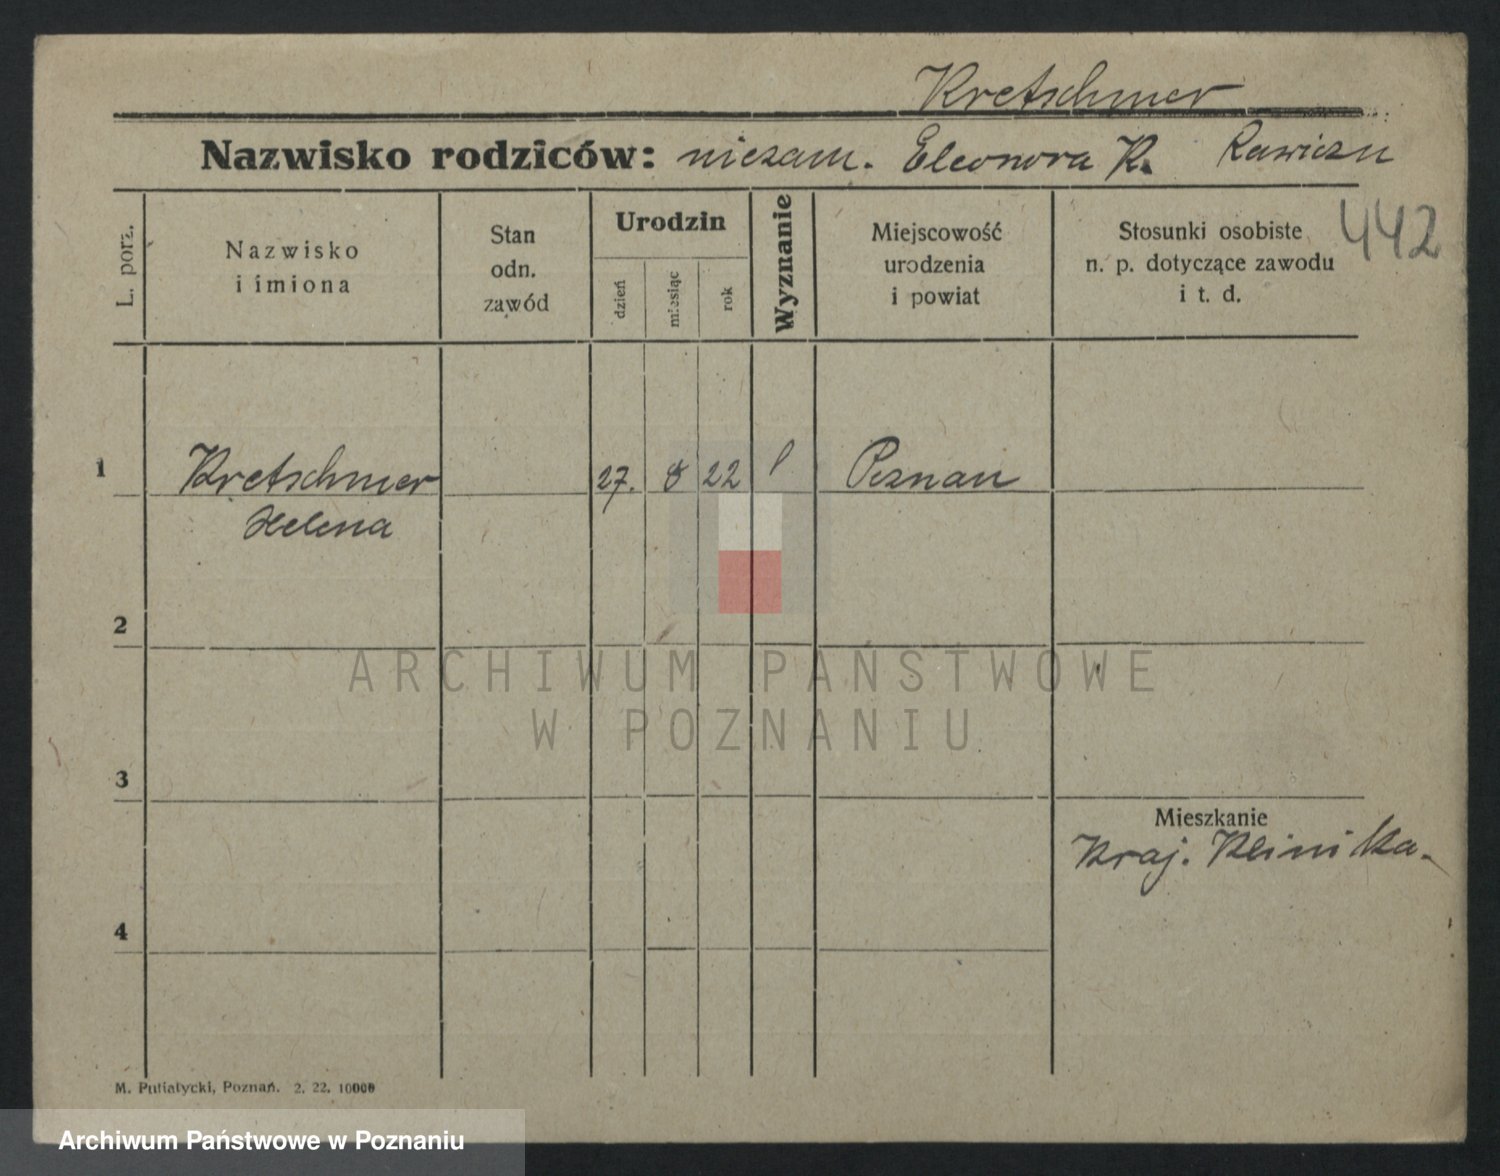 Kretschmer
Nazwisko rodziców: niezam. Eleonora K. Rawiczu
442
L. porz.
Nazwisko
i imiona
Stan
odn.
zawód
Urodzin
dzień
miesiąc
rok
Wyznanie
Miejscowość
urodzenia
i powiat
Stosunki osobiste
n. p. dotyczące zawodu
i t. d.
1 Kretschmer 27. 8 22 Poznan
Helena
2
ARCHIWUM PAŃSTWOWE
W POZNANIU
3
Mieszkanie
Kraj. Klinika.
4
M. Putiatycki, Poznań. 2. 22. 10000
Archiwum Państwowe w Poznaniu